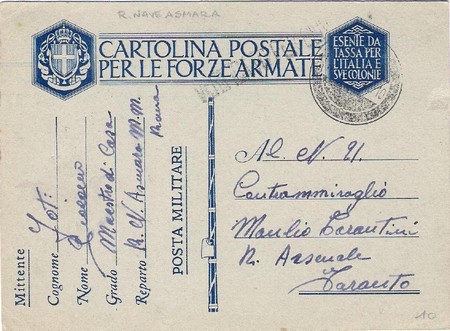 R. NAVE ASMARA
CARTOLINA POSTALE
PER LE FORZE ARMATE
ESENTE DA
TASSA PER
L'ITALIA E
SUE COLONIE
Mittente
Cognome
Nome
Grado Maestro di Casa
Reparto R. N. Asmara M.M.
Roma
POSTA MILITARE
Al N. U.
Contrammiraglio
Manlio Tarantini
R. Arsenale
Taranto
10